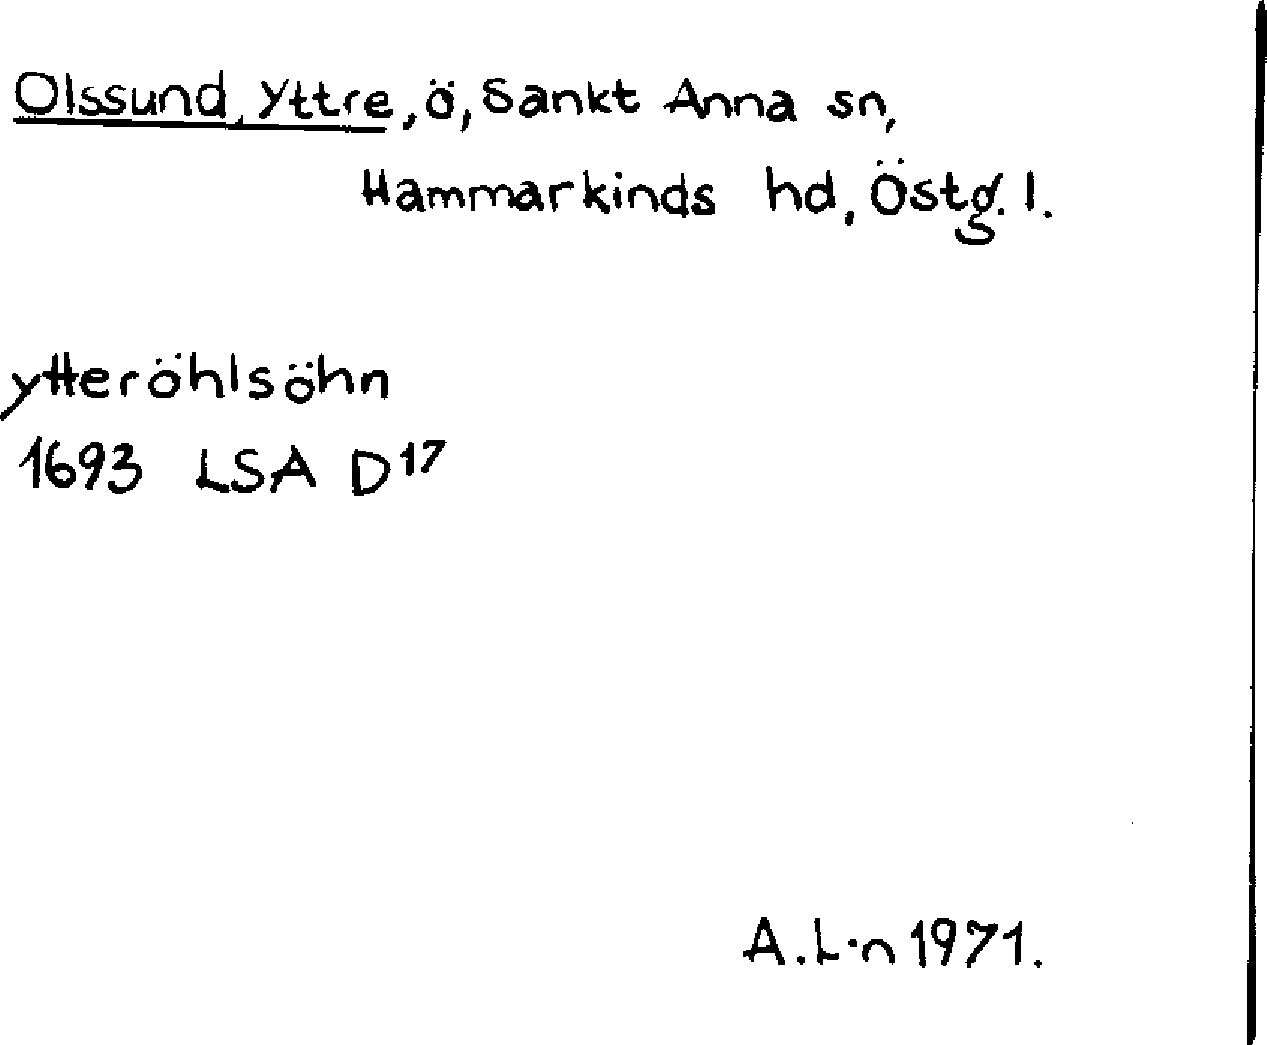 Olssund, Yttre, ö, Sankt Anna sn,
Hammarkinds hd, Östg. l.
ytteröhlsöhn
1693 LSA D17
A.L-n 1971.